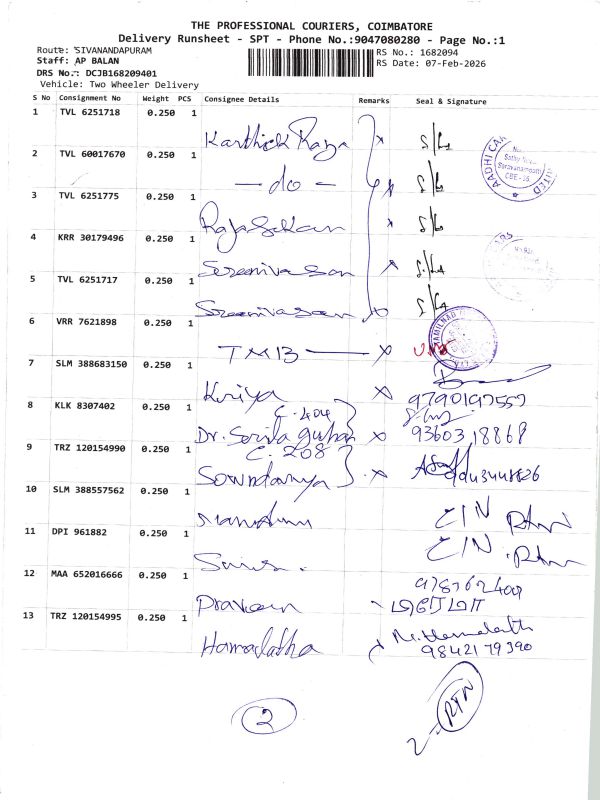 THE PROFESSIONAL COURIERS, COIMBATORE
Delivery Runsheet - SPT - Phone No.:9047080280 - Page No.:1
Route: SIVANANDAPURAM
RS No.: 1682094
Staff: AP BALAN
RS Date: 07-Feb-2026
DRS No.: DCJB168209401
Vehicle: Two Wheeler Delivery
S No Consignment No Weight PCS Consignee Details Remarks Seal & Signature
1 TVL 6251718 0.250 1
Karthick Raja x S/L
2 TVL 60017670 0.250 1
- do - x S/L
3 TVL 6251775 0.250 1
Rajasekaran x S/L
4 KRR 30179496 0.250 1
Sreenivasan x S/L
5 TVL 6251717 0.250 1
Sreenivasan S/L
6 VRR 7621898 0.250 1
TMB x
7 SLM 388683150 0.250 1
x 9790197557
8 KLK 8307402 0.250 1
C. 404
Dr. x 93603 18868
9 TRZ 120154990 0.250 1
C. 208
Sowndarya x
10 SLM 388557562 0.250 1
C/N Rtn
11 DPI 961882 0.250 1
C/N Rtn
12 MAA 652016666 0.250 1
Praveen
13 TRZ 120154995 0.250 1
Hamalatha
98421 79390
2
2 - RTN